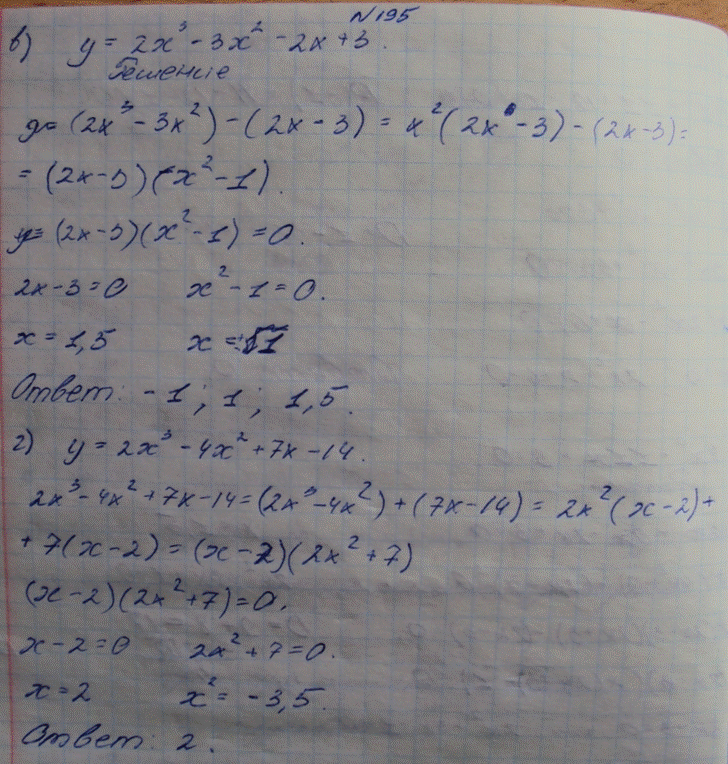 N 195
в) y = 2x³ - 3x² - 2x + 3.
Решение
y = (2x³ - 3x²) - (2x - 3) = x²(2x - 3) - (2x - 3) =
= (2x - 3)(x² - 1).
y = (2x - 3)(x² - 1) = 0.
2x - 3 = 0 x² - 1 = 0.
x = 1,5 x = ±1
Ответ: -1; 1; 1,5.
г) y = 2x³ - 4x² + 7x - 14.
2x³ - 4x² + 7x - 14 = (2x³ - 4x²) + (7x - 14) = 2x²(x - 2) +
+ 7(x - 2) = (x - 2)(2x² + 7)
(x - 2)(2x² + 7) = 0.
x - 2 = 0 2x² + 7 = 0.
x = 2 x² = -3,5.
Ответ: 2.